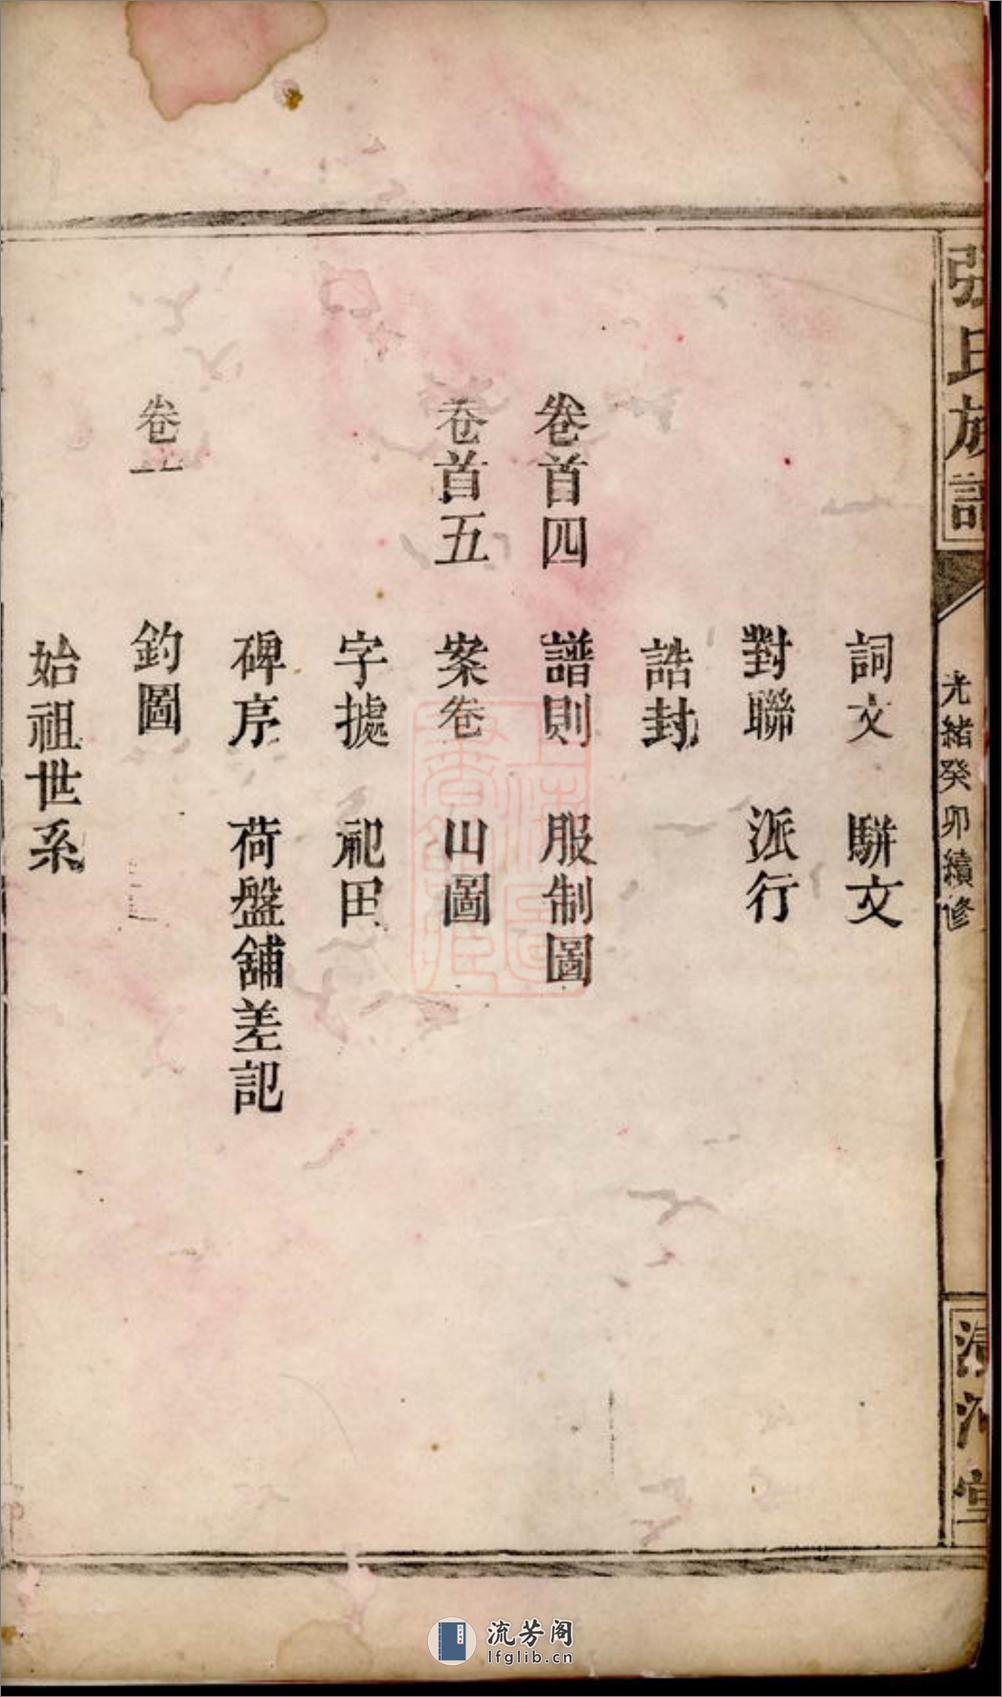 張氏族譜
光緒癸卯續修
清河堂
詞文 駢文
對聯 派行
誥封
卷首四 譜則 服制圖
卷首五 案卷 山圖
字㨿 祀田
碑序 荷盤舖差記
卷一 釣圖
始祖世系
流芳阁
lfglib.cn